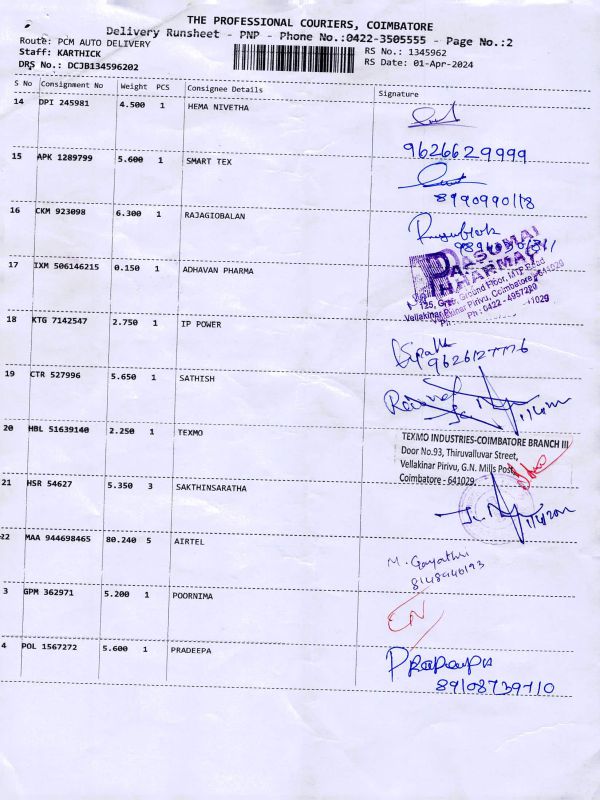 THE PROFESSIONAL COURIERS, COIMBATORE
Delivery Runsheet - PNP - Phone No.:0422-3505555 - Page No.:2
Route: PCM AUTO DELIVERY
RS No.: 1345962
Staff: KARTHICK
RS Date: 01-Apr-2024
DRS No.: DCJB134596202
S No Consignment No Weight PCS Consignee Details Signature
14 DPI 245981 4.500 1 HEMA NIVETHA
9626629999
15 APK 1289799 5.600 1 SMART TEX
8990990118
16 CKM 923098 6.300 1 RAJAGIOBALAN
17 IXM 506146215 0.150 1 ADHAVAN PHARMA
PHARMAY
125, Ground Floor, MTP Road
Vellakinar Pirivu, Coimbatore - 641029
Ph : 0422 - 4957280
18 KTG 7142547 2.750 1 IP POWER
9626127776
19 CTR 527996 5.650 1 SATHISH
20 HBL 51639140 2.250 1 TEXMO
TEXMO INDUSTRIES-COIMBATORE BRANCH III
Door No.93, Thiruvalluvar Street,
Vellakinar Pirivu, G.N. Mills Post,
Coimbatore - 641029.
21 HSR 54627 5.350 3 SAKTHINSARATHA
22 MAA 944698465 80.240 5 AIRTEL
M. Gayathri
8148940193
3 GPM 362971 5.200 1 POORNIMA
CN
4 POL 1567272 5.600 1 PRADEEPA
Pradeepa
8910873940